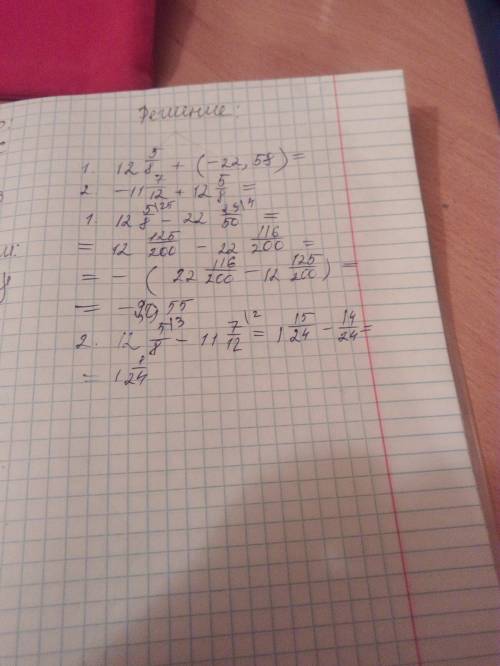 Решение:
1. 12 5/8 + (-22,58) =
2 -11 7/12 + 12 5/8 =
1. 12 5\25/8 - 22 29\4/50 =
= 12 125/200 - 22 116/200 =
= - ( 22 116/200 - 12 125/200 ) =
=
2. 12 5\3/8 - 11 7\2/12 = 1 15/24 - 14/24 =
= 1 1/24